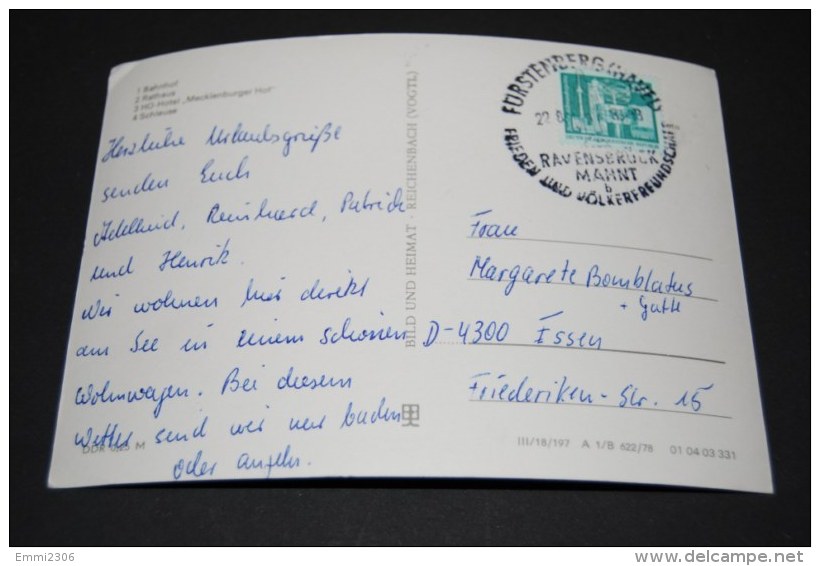 1 Bahnhof
2 Rathaus
3 HO-Hotel „Mecklenburger Hof"
4 Schleuse
Herzliche Urlaubsgrüße
senden Euch
Adelheid, Reinhard, Patrick
und Henrik.
Wir wohnen hier direkt
am See in einem schönen
Wohnwagen. Bei diesem
Wetter sind wir nur baden
oder angeln.
DDR M
BILD UND HEIMAT · REICHENBACH (VOGTL)
FÜRSTENBERG (HAVEL)
22
RAVENSBRÜCK
MAHNT
b
FRIEDEN UND VÖLKERFREUNDSCHAFT
Frau
Margarete Bomblatus
+ Gatte
D-4300 Essen
Friederiken-Str. 15
III/18/197 A 1/B 622/78 01 04 03 331
Emmi2306
http://www.delcampe.net